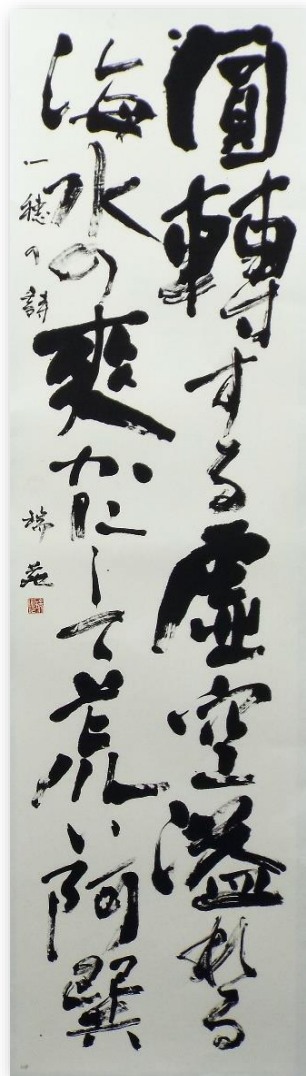 圓轉する虚空溢れる
海水の爽かにして荒い阿巽
一穂の詩